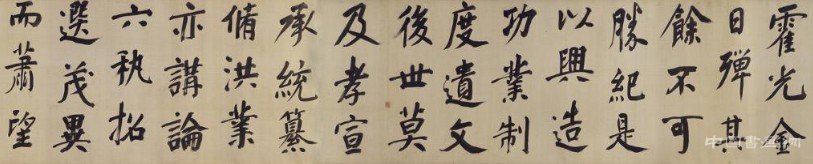 霍光金
日殫其
餘不可
勝紀是
以興造
功業制
度遺文
後世莫
及孝宣
承統纂
脩洪業
亦講論
六秇招
選茂異
而蕭望
中国书画网